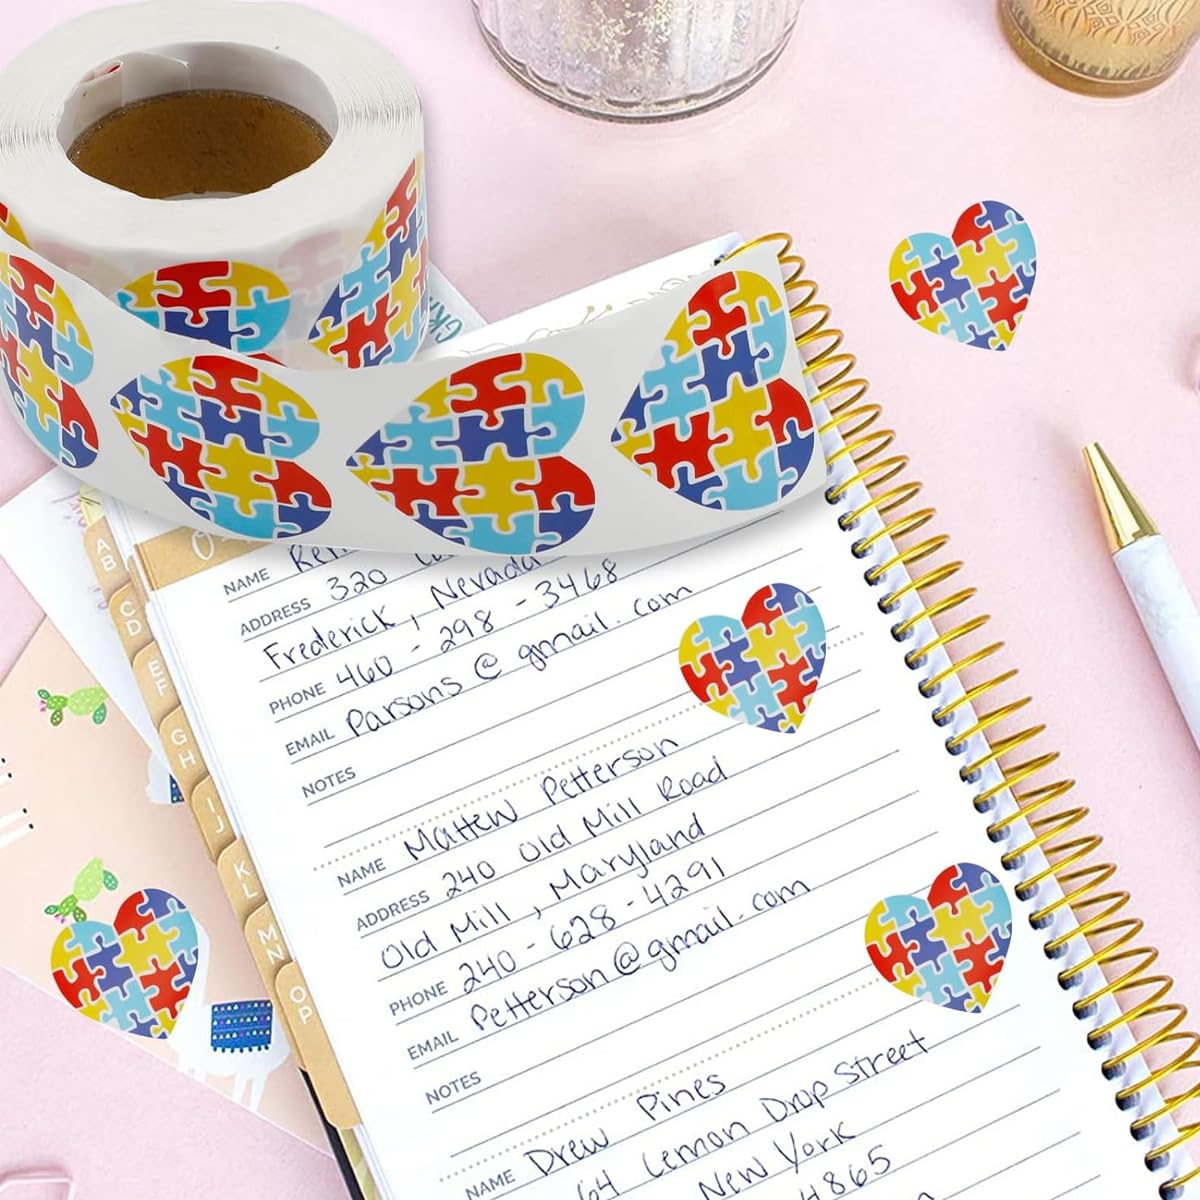 NAME
ADDRESS 320
Frederick, Nevada
PHONE 460-298-3468
EMAIL Parsons@gmail.com
NOTES
NAME Mattew Petterson
ADDRESS 240 Old Mill Road
Old Mill, Maryland
PHONE 240-628-4291
EMAIL Petterson@gmail.com
NOTES
NAME Drew Pines
64 Lemon Drop Street
New York
4865
AB
CD
EF
GH
IJ
KL
MN
OP